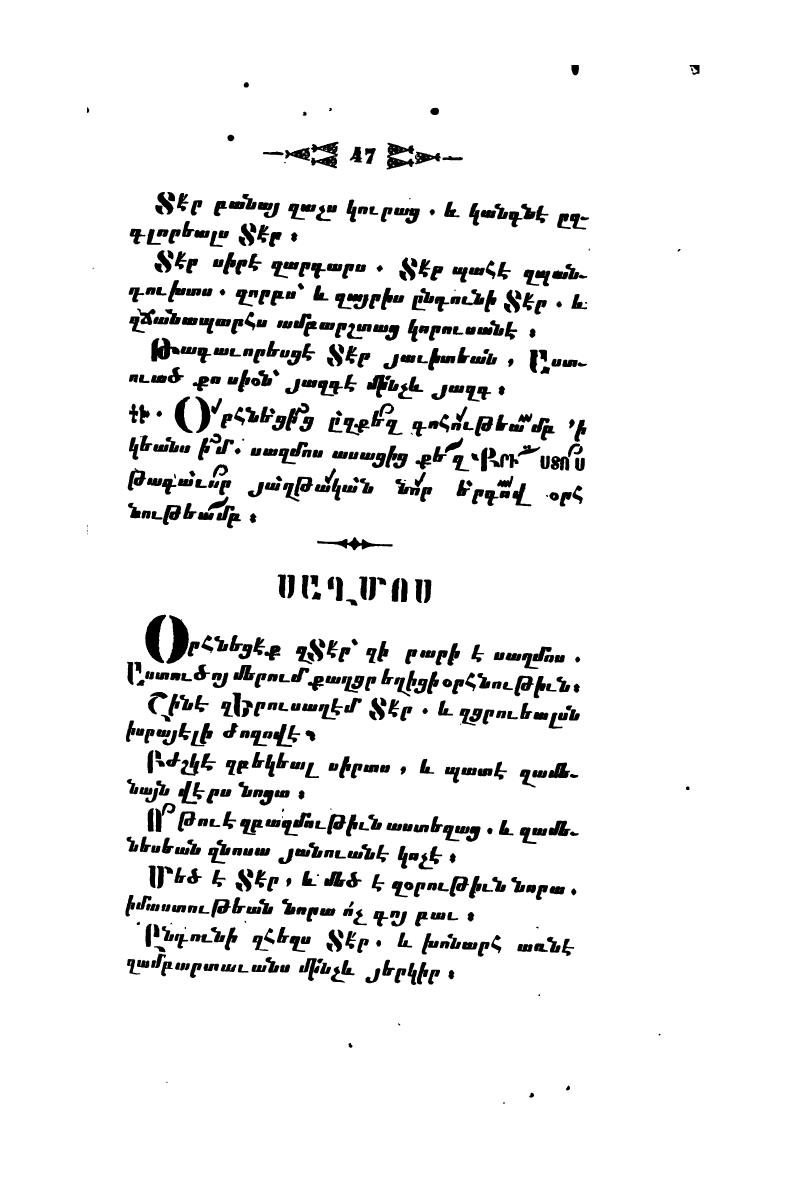 47
Տէր բանայ զաչս կուրաց . և կանգնէ ըզ-
գլորեալս Տէր ։
Տէր սիրէ զարդարս . Տէր պահէ զպան-
դուխտս . զորբս՝ և զայրիս ընդունի Տէր . և
զճանապարհս ամբարշտաց կորուսանէ ։
Թագաւորեսցէ Տէր յաւիտեան , Աստ-
ուած քո սիօն՝ յազգէ մինչև յազգ ։
Օրհնեցից ըզքեզ գոհութեամբ ՚ի
կեանս իմ . սաղմոս ասացից քեզ
թագաւոր յաղթական նոր երգով օրհ
նութեամբ ։
ՍԱՂՄՈՍ
Օրհնեցէք զՏէր՝ զի բարի է սաղմոս .
Աստուծոյ մերում քաղցր եղիցի օրհնութիւն։
Շինէ զԵրուսաղէմ Տէր . և զցրուեալսն
իսրայէլի ժողովէ ։
Բժշկէ զբեկեալ սիրտս , և պատէ զամե-
նայն վէրս նոցա ։
Ո՛ թուէ զբազմութիւն աստեղաց . և զամե-
նեսեան զնոսա յանուանէ կոչէ ։
Մեծ է Տէր , և մեծ է զօրութիւն նորա .
իմաստութեան նորա ո՛չ գոյ բաւ ։
Ընդունի զհեզս Տէր . և խոնարհ առնէ
զամբարտաւանս մինչև յերկիր ։